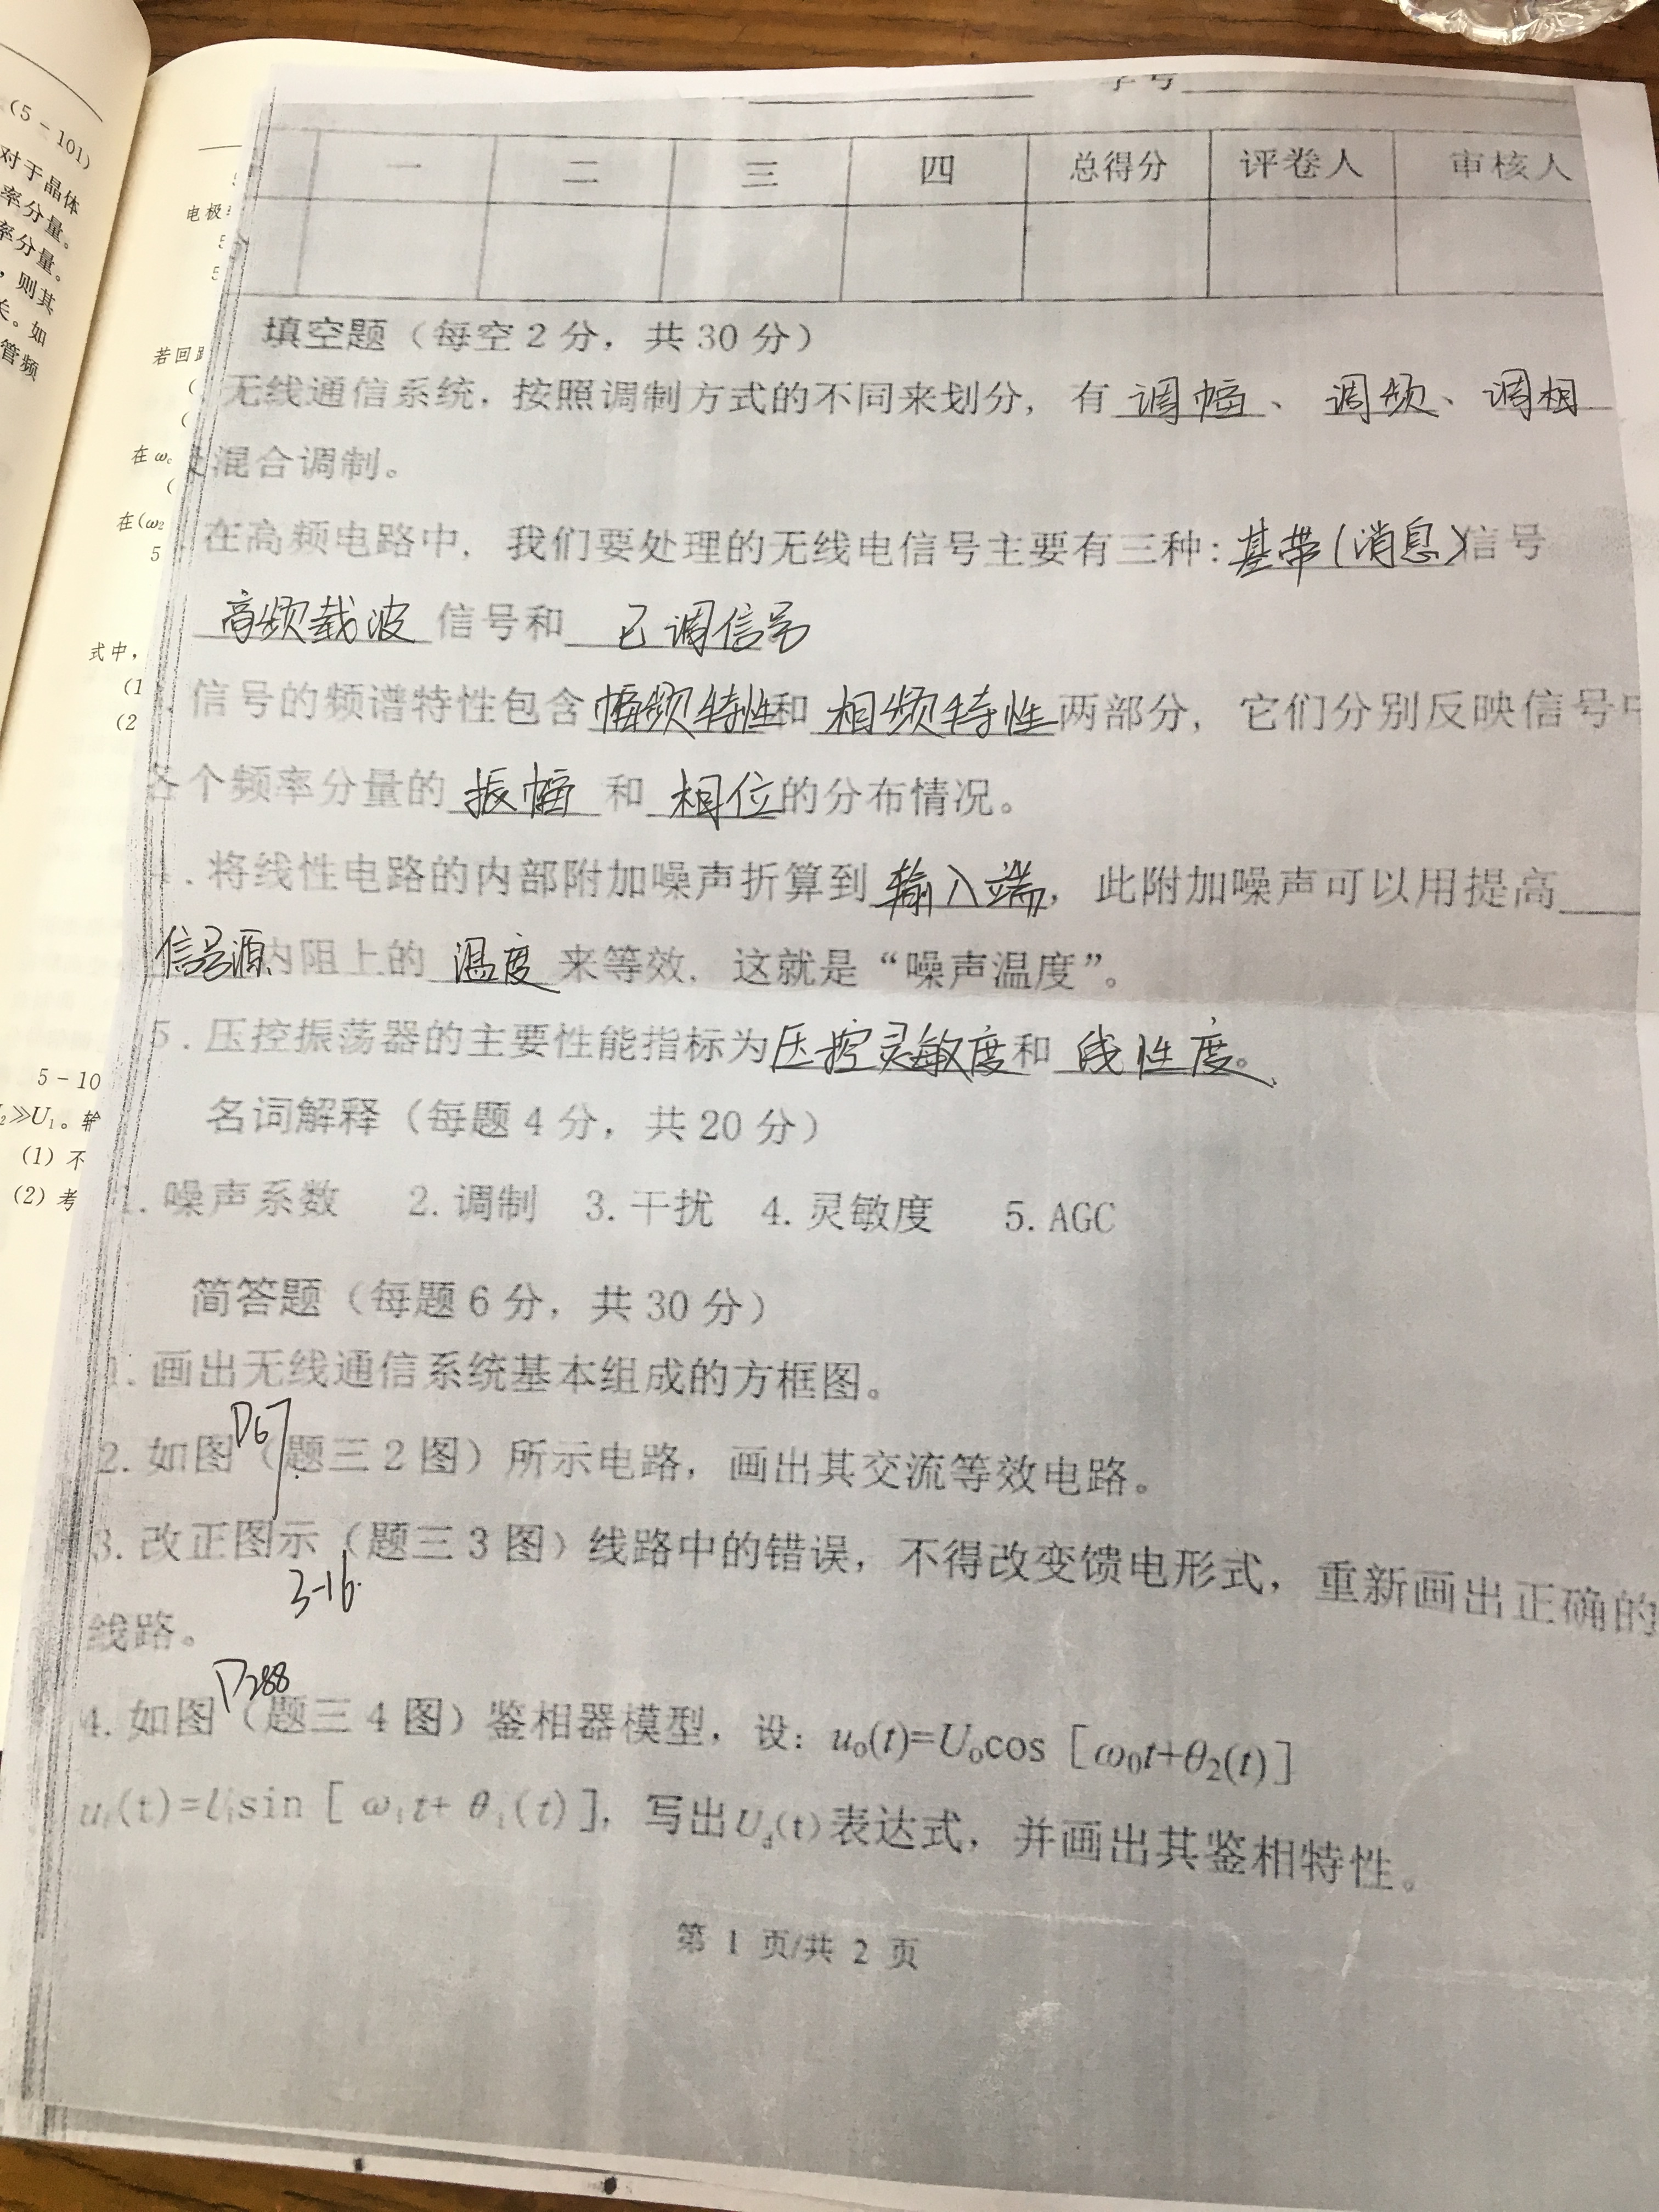 (5-101)
对于晶体
率分量。
率分量。
，则其
关。如
管频
电极
若回路
在ωc
在(ω2
5
式中，
(1
(2
5-10
U₂≫U₁。输
(1) 不
(2) 考
学号
一 二 三 四 总得分 评卷人 审核人
填空题（每空2分，共30分）
无线通信系统，按照调制方式的不同来划分，有 调幅 、 调频 、 调相
混合调制。
在高频电路中，我们要处理的无线电信号主要有三种：基带(消息)信号
高频载波 信号和 已调信号
信号的频谱特性包含幅频特性和 相频特性 两部分，它们分别反映信号中
各个频率分量的 振幅 和 相位 的分布情况。
.将线性电路的内部附加噪声折算到 输入端，此附加噪声可以用提高
信号源内阻上的 温度 来等效，这就是“噪声温度”。
5.压控振荡器的主要性能指标为压控灵敏度和 线性度。
名词解释（每题4分，共20分）
1.噪声系数 2.调制 3.干扰 4.灵敏度 5.AGC
简答题（每题6分，共30分）
1.画出无线通信系统基本组成的方框图。
P67
2.如图（题三2图）所示电路，画出其交流等效电路。
3.改正图示（题三3图）线路中的错误，不得改变馈电形式，重新画出正确的
3-16.
线路。
P288
4.如图（题三4图）鉴相器模型，设：u₀(t)=U₀cos［ω₀t+θ₂(t)］
uᵢ(t)=Uᵢsin［ω₁t+θ₁(t)］，写出U_d(t)表达式，并画出其鉴相特性。
第 1 页/共 2 页